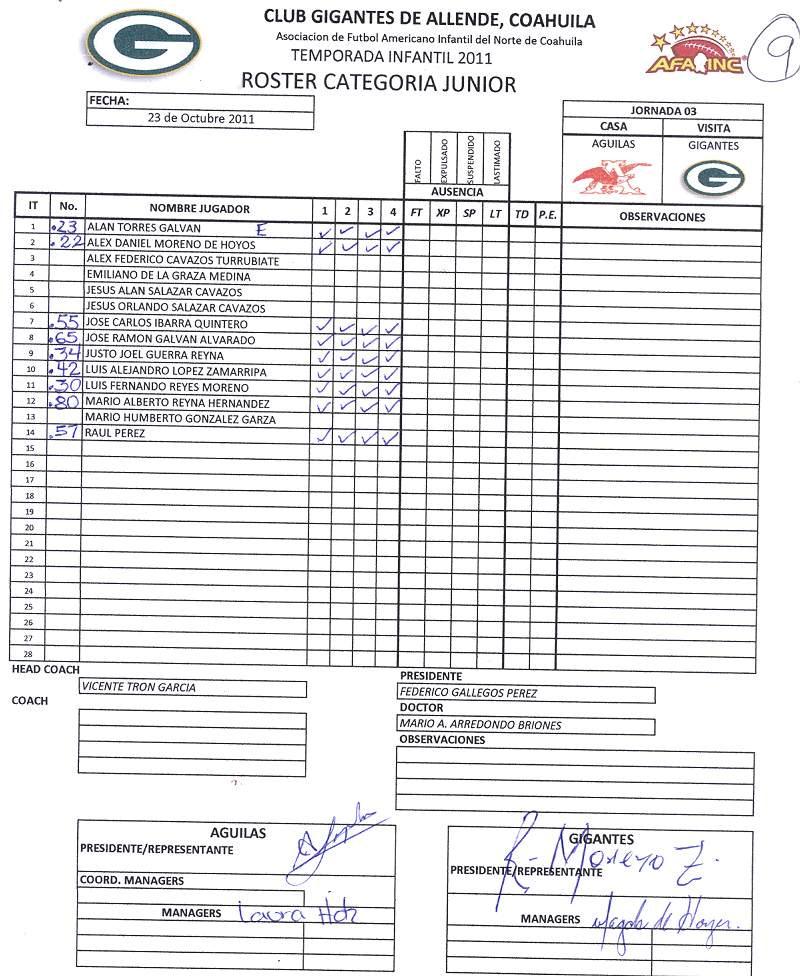 CLUB GIGANTES DE ALLENDE, COAHUILA
Asociacion de Futbol Americano Infantil del Norte de Coahuila
TEMPORADA INFANTIL 2011
ROSTER CATEGORIA JUNIOR
G
AFAINC
9
FECHA:
23 de Octubre 2011
JORNADA 03
CASA VISITA
AGUILAS GIGANTES
G
FALTO EXPULSADO SUSPENDIDO LASTIMADO
AUSENCIA
IT No. NOMBRE JUGADOR 1 2 3 4 FT XP SP LT TD P.E. OBSERVACIONES
1 .23 ALAN TORRES GALVAN E ✓ ✓ ✓ ✓
2 .22 ALEX DANIEL MORENO DE HOYOS ✓ ✓ ✓ ✓
3 ALEX FEDERICO CAVAZOS TURRUBIATE
4 EMILIANO DE LA GRAZA MEDINA
5 JESUS ALAN SALAZAR CAVAZOS
6 JESUS ORLANDO SALAZAR CAVAZOS
7 .55 JOSE CARLOS IBARRA QUINTERO ✓ ✓ ✓ ✓
8 .65 JOSE RAMON GALVAN ALVARADO ✓ ✓ ✓ ✓
9 .34 JUSTO JOEL GUERRA REYNA ✓ ✓ ✓ ✓
10 .42 LUIS ALEJANDRO LOPEZ ZAMARRIPA ✓ ✓ ✓ ✓
11 .30 LUIS FERNANDO REYES MORENO ✓ ✓ ✓ ✓
12 .80 MARIO ALBERTO REYNA HERNANDEZ ✓ ✓ ✓ ✓
13 MARIO HUMBERTO GONZALEZ GARZA
14 .57 RAUL PEREZ ✓ ✓ ✓ ✓
15
16
17
18
19
20
21
22
23
24
25
26
27
28
HEAD COACH
VICENTE TRON GARCIA
COACH
PRESIDENTE
FEDERICO GALLEGOS PEREZ
DOCTOR
MARIO A. ARREDONDO BRIONES
OBSERVACIONES
AGUILAS
PRESIDENTE/REPRESENTANTE
COORD. MANAGERS
MANAGERS Laura
GIGANTES
PRESIDENTE/REPRESENTANTE R. Moreno Z.
MANAGERS Magda de Hoyos.